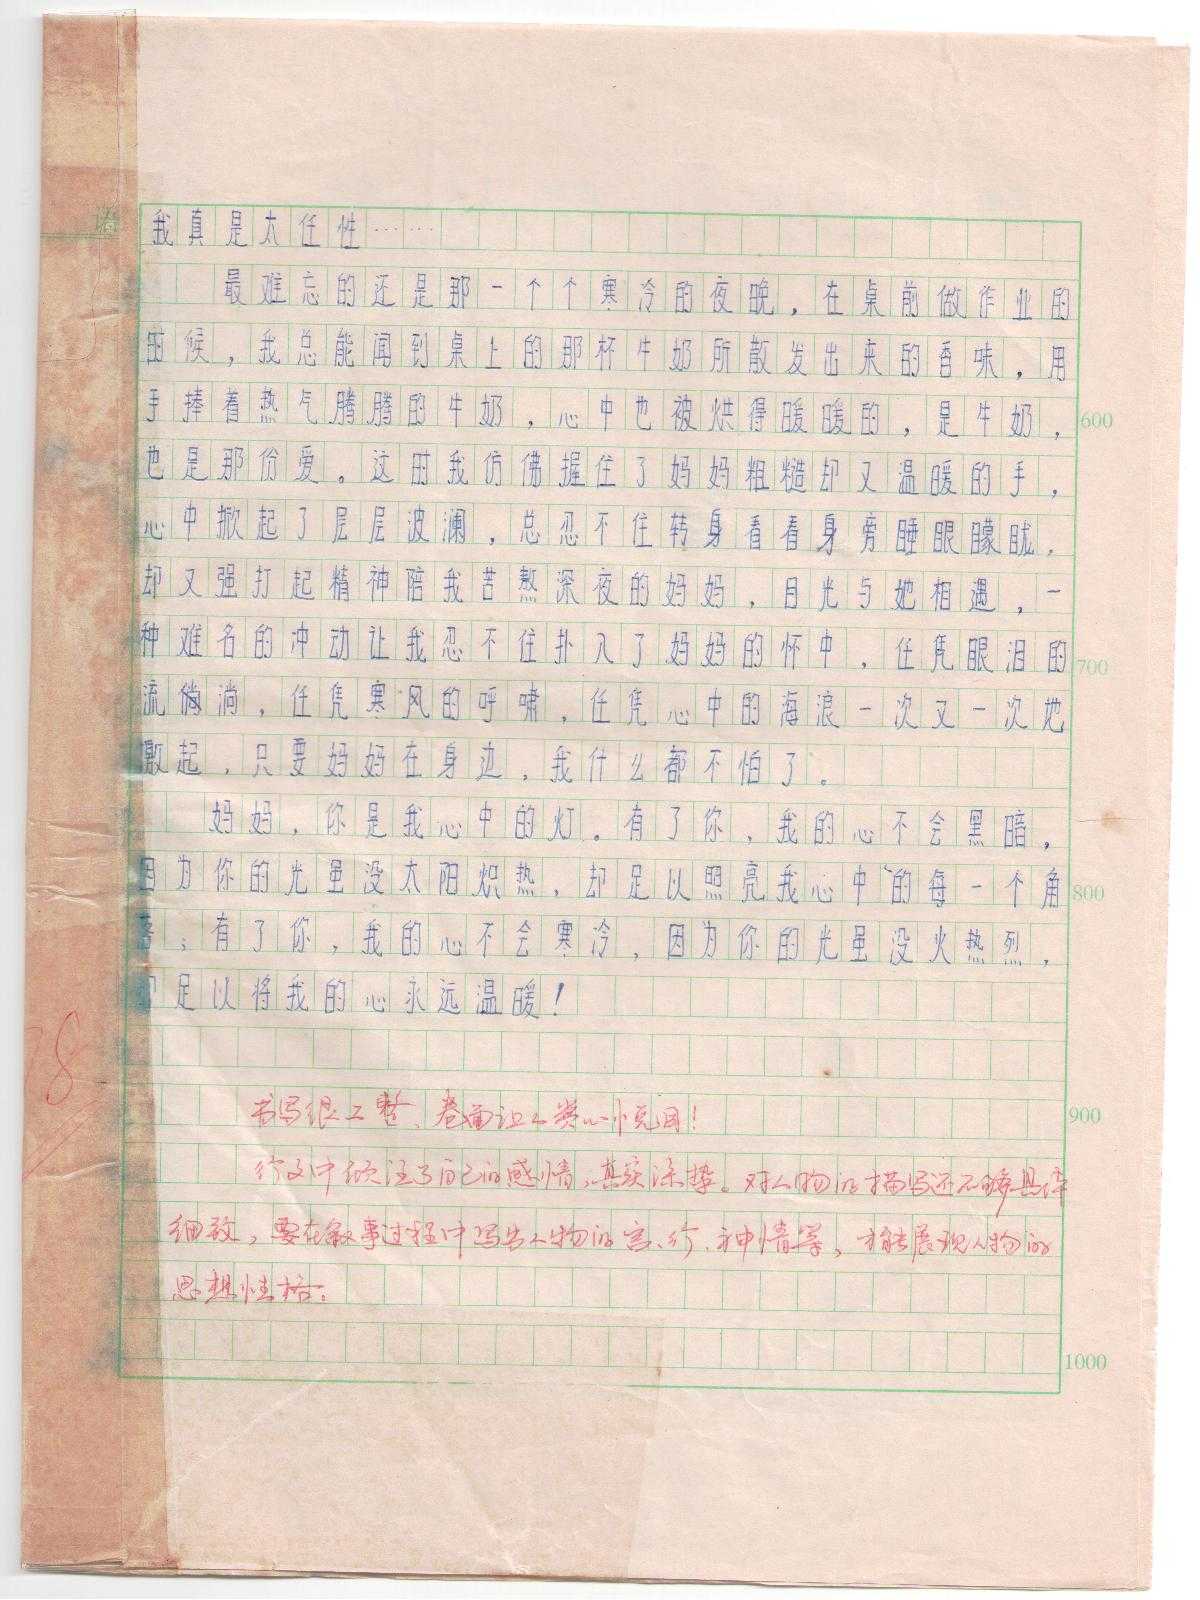 语
我真是太任性……
最难忘的还是那一个个寒冷的夜晚，在桌前做作业的
时候，我总能闻到桌上的那杯牛奶所散发出来的香味，用
手捧着热气腾腾的牛奶，心中也被烘得暖暖的，是牛奶，
600
也是那份爱。这时我仿佛握住了妈妈粗糙却又温暖的手，
心中掀起了层层波澜，总忍不住转身看看身旁睡眼朦胧，
却又强打起精神陪我苦熬深夜的妈妈，目光与她相遇，一
种难名的冲动让我忍不住扑入了妈妈的怀中，任凭眼泪的
700
流淌，任凭寒风的呼啸，任凭心中的海浪一次又一次地
激起，只要妈妈在身边，我什么都不怕了。
妈妈，你是我心中的灯。有了你，我的心不会黑暗，
因为你的光虽没太阳炽热，却足以照亮我心中的每一个角
800
落；有了你，我的心不会寒冷，因为你的光虽没火热烈，
却足以将我的心永远温暖！
8
书写很工整、卷面让人赏心悦目！
900
行文中倾注了自己的感情，真实深挚。对人物的描写还不够具体
细致，要在叙事过程中写出人物的言、行、神情等，才能展现人物的
思想性格。
1000